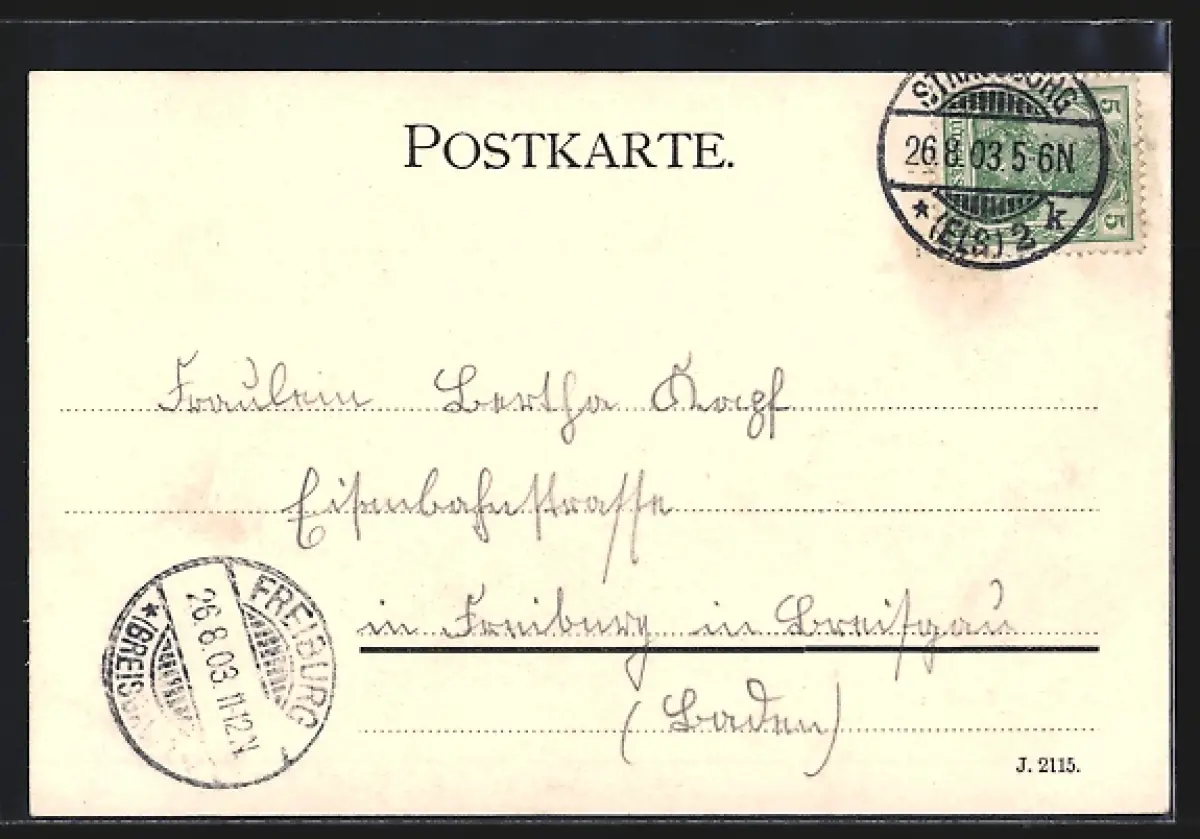 POSTKARTE.
STRASSBURG
26.8.03.5-6N
* (ELS.) 2 k
5
5
Fräulein Bertha Kopf
Eisenbahnstrasse
in Freiburg in Breisgau
(Baden)
FREIBURG
26.8.03.11-12N
* (BREISGAU)
J. 2115.